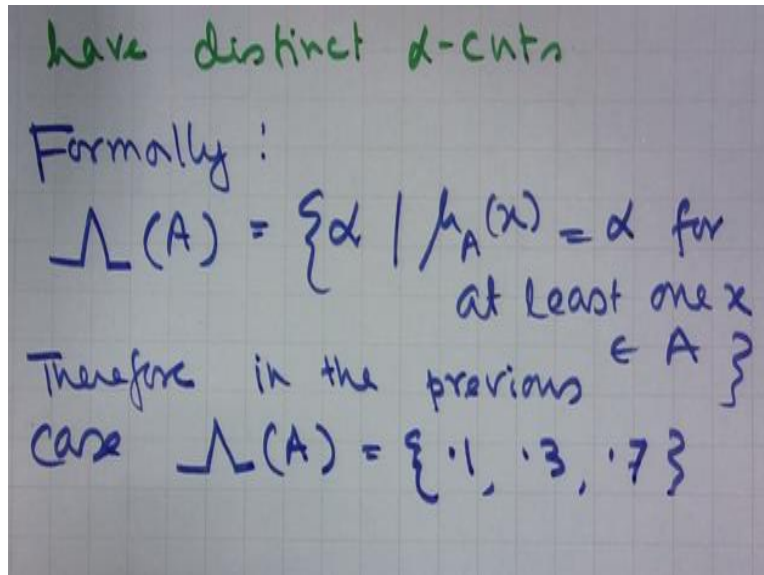 have distinct α-cuts
Formally :
Λ(A) = {α | μ_A(x) = α for
at least one x
∈ A }
Therefore in the previous
case Λ(A) = {.1, .3, .7}